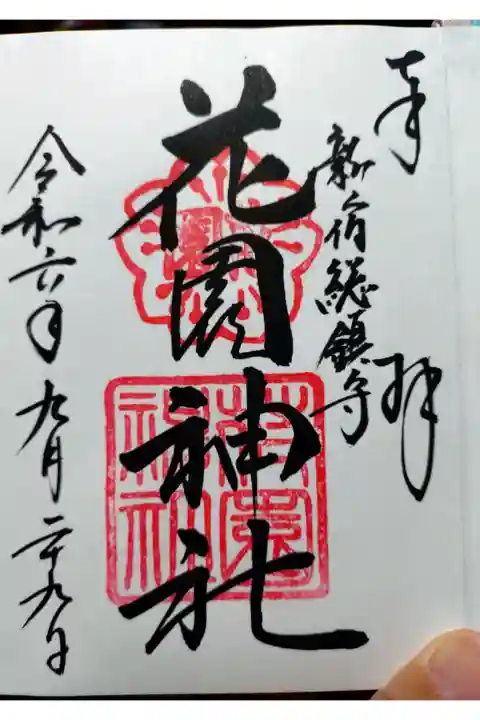 奉拝
新宿総鎮守
花園神社
令和六年九月二十九日
花園神社